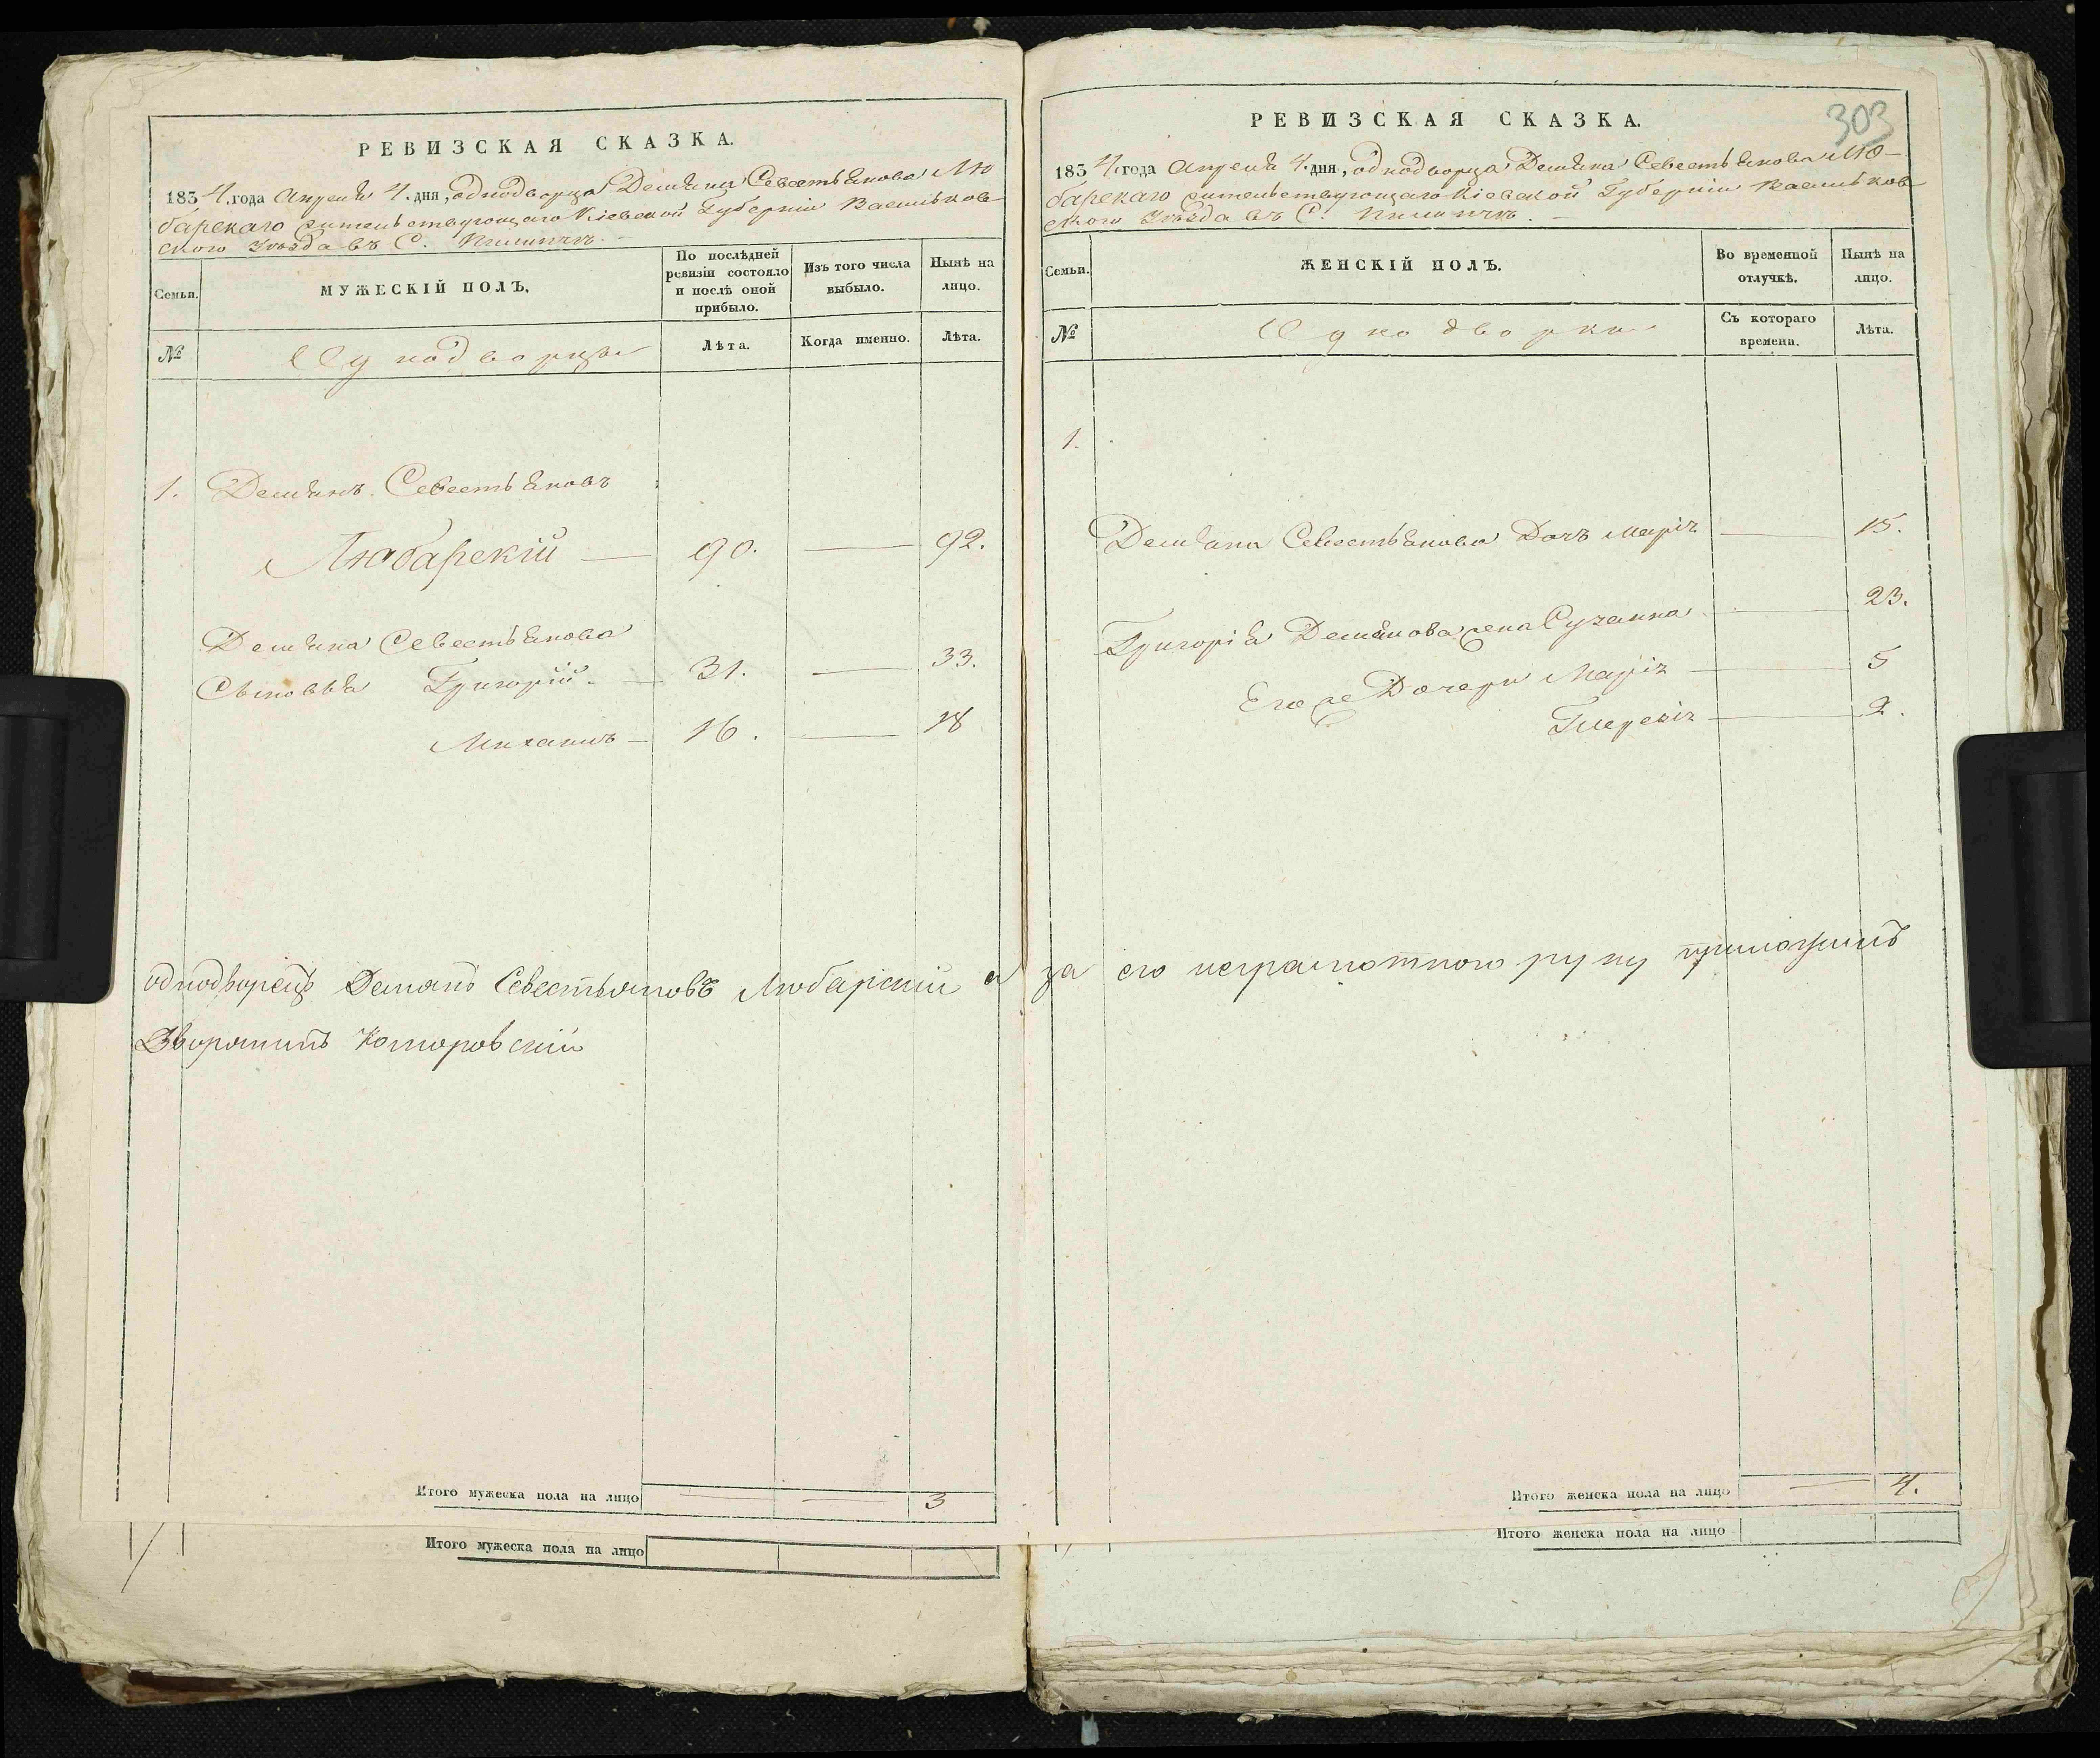 РЕВИЗСКАЯ СКАЗКА.
1834 года Апреля 4 дня, однодворца Демяна Севестьянова Лю
барскаго жительствующаго Кіевской Губерніи Васильков
ского Уезда въ С.
Семьи.
МУЖЕСКІЙ ПОЛЪ.
По послѣдней ревизіи состояло и послѣ оной прибыло.
Изъ того числа выбыло.
Нынѣ на лицо.
№
Однодворцы
Лѣта.
Когда именно.
Лѣта.
1. Демянъ Севестьяновъ
Любарскій — 90. — 92.
Демяна Севестьянова
Сыновья Григорій — 31. — 33.
Михаилъ — 16. — 18
однодворецъ Демянъ Севестьяновъ Любарский а за его неграмотного руку приложилъ
Дворянинъ Коморовский
Итого мужеска пола на лицо — — 3
Итого мужеска пола на лицо
303
РЕВИЗСКАЯ СКАЗКА.
1834 года Апреля 4 дня, однодворца Демяна Севестьянова Лю-
барскаго жительствующаго Кіевской Губерніи Васильков
ского Уезда въ С.
Семьи.
ЖЕНСКІЙ ПОЛЪ.
Во временной отлучкѣ.
Нынѣ на лицо.
№
Однодворки
Съ котораго времени.
Лѣта.
1.
Демяна Севестьянова Дочь Марія — 15.
Григорія Демянова жена Сузанна — 23.
Его же Дочери Марія — 5
— 2.
Итого женска пола на лицо — 4.
Итого женска пола на лицо